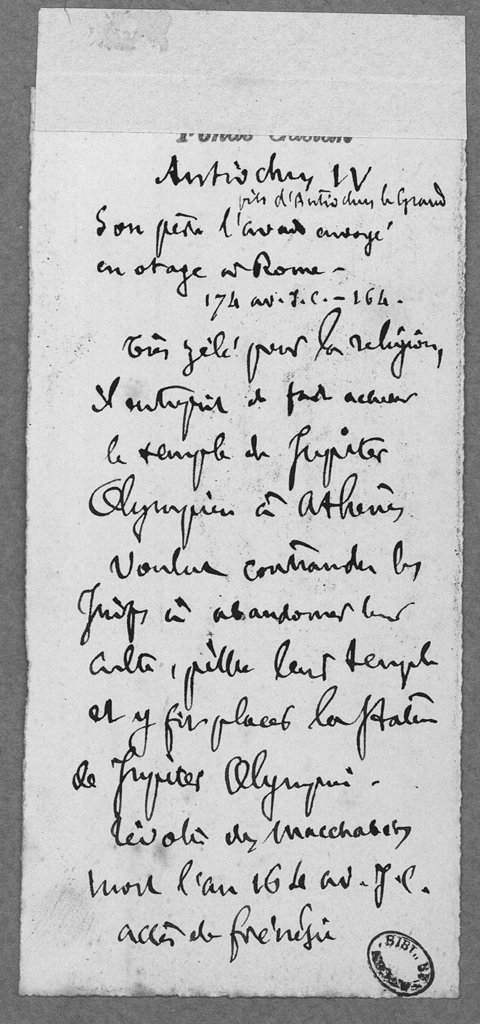 Antiochus IV
fils d'Antiochus le Grand
Son père l'avait envoyé
en otage à Rome -
174 av. J.C. - 164.
très zélé pour la religion,
il entreprit de faire achever
le temple de Jupiter
Olympien à Athènes
voulut contraindre les
Juifs à abandonner leur
culte, pilla leur temple
et y fit placer la statue
de Jupiter Olympien.
révolte des Macchabées
mort l'an 164 av. J.C.
accès de frénésie
BIBL. BESANÇON